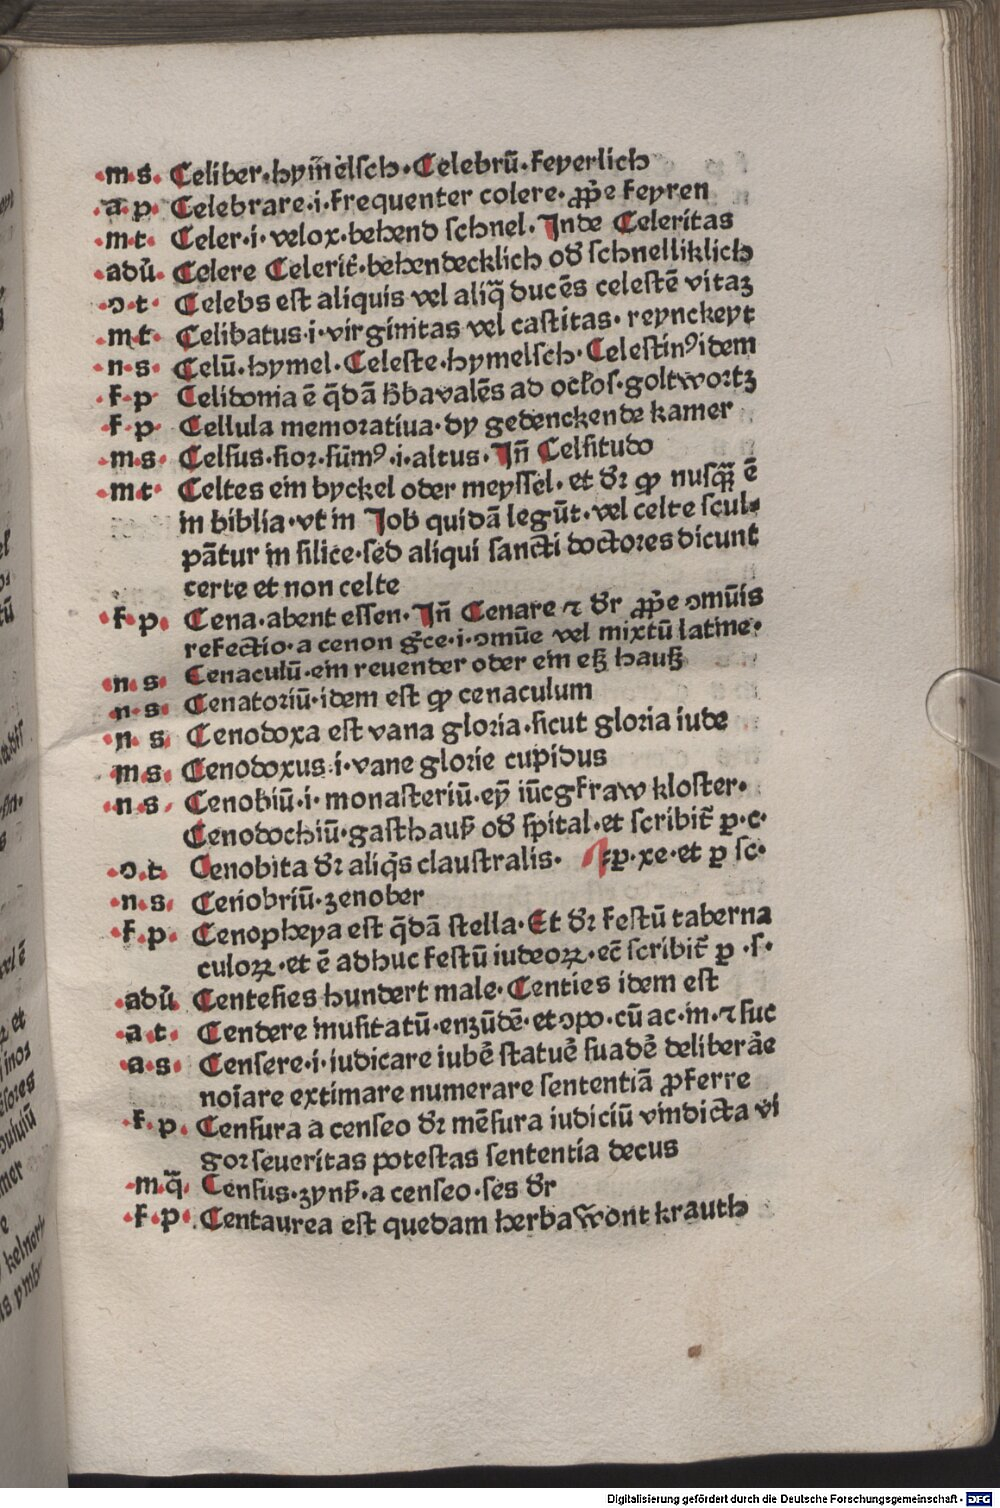 ·m·s· Celiber·hym̄elsch·Celebrū·feyerlich
·a·p· Celebrare·i·frequenter colere·ꝓp̄e feyren
·m·t· Celer·i·velox·behend schnel·Inde Celeritas
·adū· Celere Celerit̄·behendecklich od̄ schnelliklich
·ↄ·t· Celebs est aliquis vel aliq̄ ducēs celestē vitaꝫ
·m·t· Celibatus·i·virginitas vel castitas·reynckeyt
·n·s· Celū·hymel·Celeste·hymelsch·Celestinꝰ idem
·f·p· Celidonia ē q̄dā h̄ba valēs ad oc̄los·goltwortz
·f·p· Cellula memoratiua·dy gedenckende kamer
·m·s· Celsus·sior·sūmꝰ·i·altus·Iñ Celsitudo
·m·t· Celtes ein byckel oder meyssel·et dr̄ ꝙ nusq̄ꝫ ē
in biblia·vt in Job quidā legūt·vel celte scul-
pātur in silice·sed aliqui sancti doctores dicunt
certe et non celte
·f·p· Cena·abent essen·Iñ Cenare ⁊ dr̄ ꝓp̄e ↄmūis
refectio·a cenon gr̄ce·i·ↄmūe vel mixtū latine·
·n·s· Cenaculū·ein reuender oder ein eß hauß
·n·s· Cenatoriū·idem est ꝙ cenaculum
·n·s· Cenodoxa est vana gloria·sicut gloria iude
·m·s· Cenodoxus·i·vane glorie cupidus
·n·s· Cenobiū·i·monasteriū·ey̅ iūcgfraw kloster·
Cenodochiū·gasthauß od̄ spital·et scribit̄ ꝑ·c·
·ↄ·t· Cenobita dr̄ aliq̄s claustralis· ꝑ·xe·et ꝑ sc·
·n·s· Cenobriū·zenober
·f·p· Cenopheya est q̄dā stella·Et dr̄ festū taberna
culoꝝ·et ē adhuc festū iudeoꝝ·ec̄ scribit̄ ꝑ·s·
·adū· Centesies hundert male·Centies idem est
·a·t· Cendere inusitatū·enzūdē·et ↄpo·cū ac·in·⁊ suc
·a·s· Censere·i·iudicare iubē statuē suadē deliberāe
noīare extimare numerare sententiā ꝓferre
·f·p· Censura a censeo dr̄ mēsura iudiciū vindicta vi
gor seueritas potestas sententia decus
·m·q̄· Census·zynß·a censeo·ses dr̄
·f·p· Centaurea est quedam herba wont krauth
Digitalisierung gefördert durch die Deutsche Forschungsgemeinschaft - DFG